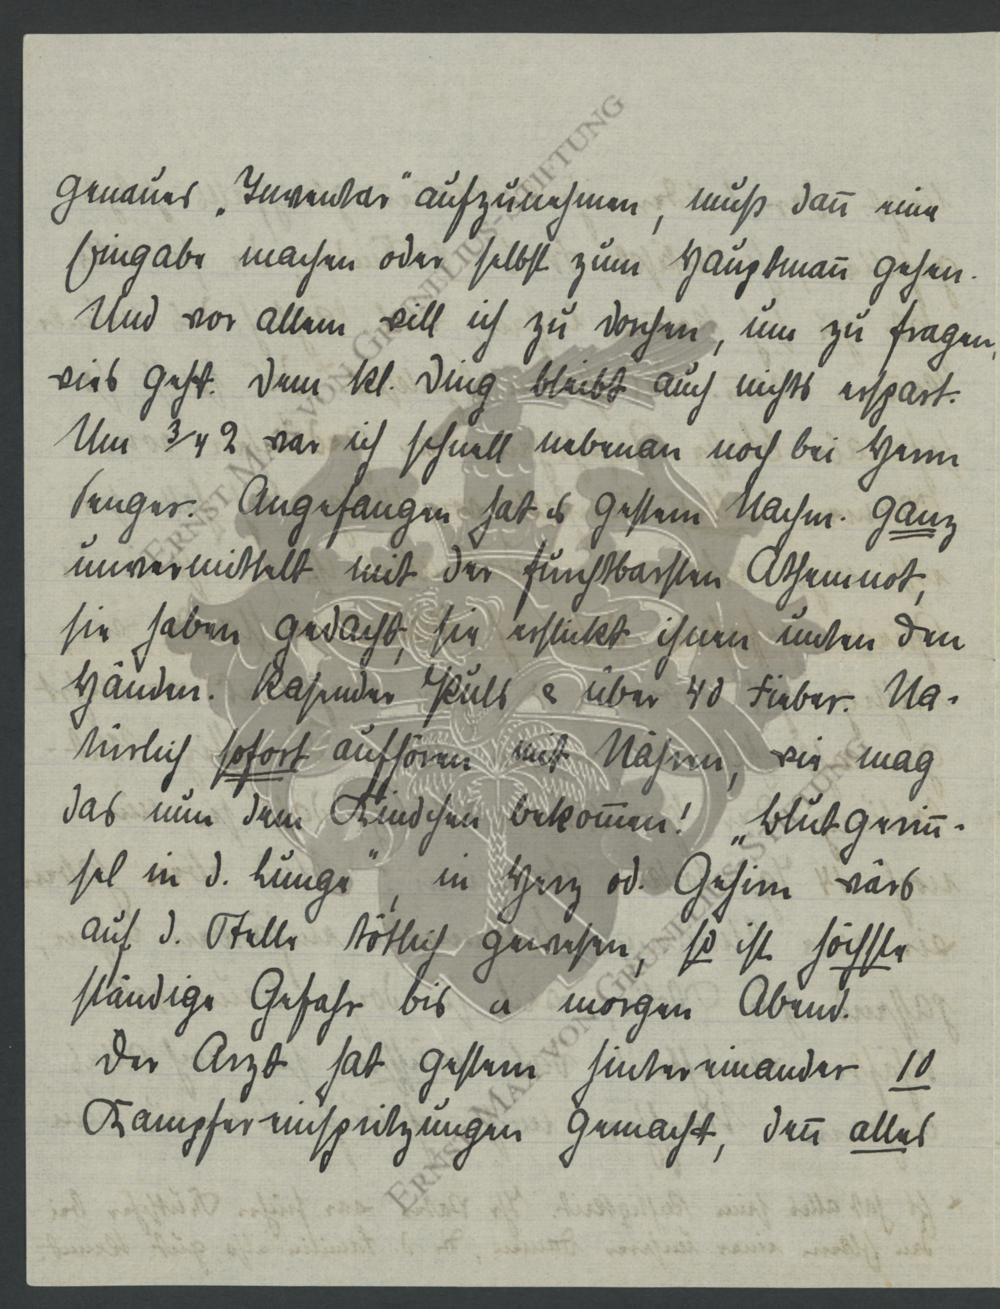 genaues „Inventar" aufzunehmen, muß dan̅ eine
Eingabe machen oder selbst zum Hauptman̅ gehen.
Und vor allem will ich zu       , um zu fragen,
wies geht. Dem kl. Ding bleibt auch nichts erspart.
Um 3/4 2 war ich schnell nebenan noch bei Herrn
Senger. Angefangen hat es gestern Nachm. ganz
unvermittelt mit der furchtbarsten Athemnot,
sie haben gedacht, sie erstickt ihnen unter den
Händen. Rasender Puls & über 40 Fieber. Na-
türlich sofort aufhören mit Nähren, wie mag
das nun dem Kindchen bekom̅en! „Blutgerin̅-
sel in d. Lunge", in Herz od. Gehirn wärs
auf d. Stelle tötlich gewesen, so ist höchste
ständige Gefahr bis       morgen Abend.
Der Arzt hat gestern hintereinander 10
Kampfereinspritzungen gemacht, den̅ alles
ERNST MAX VON GRUNELIUS-STIFTUNG
ERNST MAX VON GRUNELIUS-STIFTUNG